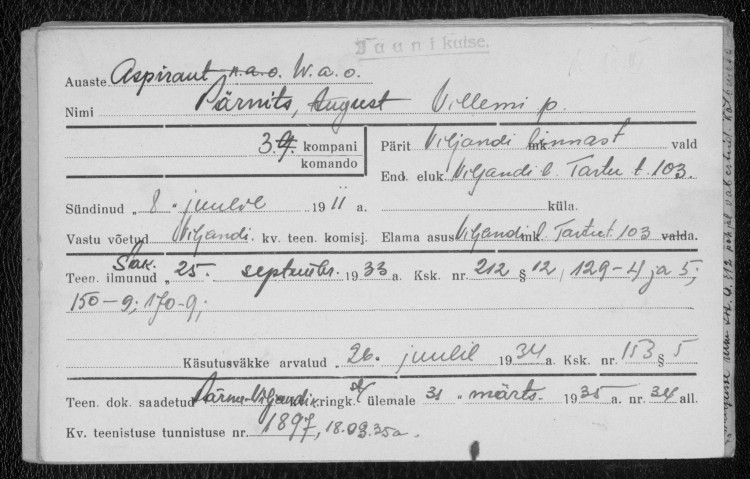 Taunikutse.
Auaste Aspirant n.a.o. W.a.o.
Nimi Pärnits, August Villemi p.
3. 9. kompani
komando
Pärit Viljandi mk. linnast vald
End. eluk. Viljandi l. Tartu t. 103.
küla.
Sündinud „ 8 „ juulil 1911 a.
Vastu võetud Viljandi. kv. teen. komisj.
Elama asus Viljandi mk. l. Tartu t. 103 valda.
Teen. ilmunud Sak. „ 25. septembr. 1933 a. Ksk. nr. 212 § 12, 129-4 ja 5;
150-9; 170-9;
Käsutusväkke arvatud „ 26. juulil 1934 a. Ksk. nr. 153 § 5
Teen. dok. saadetud Pärnu-Viljandi kringk. ülemale 31 „ märts. 1935 a. nr. 34 all.
Kv. teenistuse tunnistuse nr. 1897, 18.03.35a.